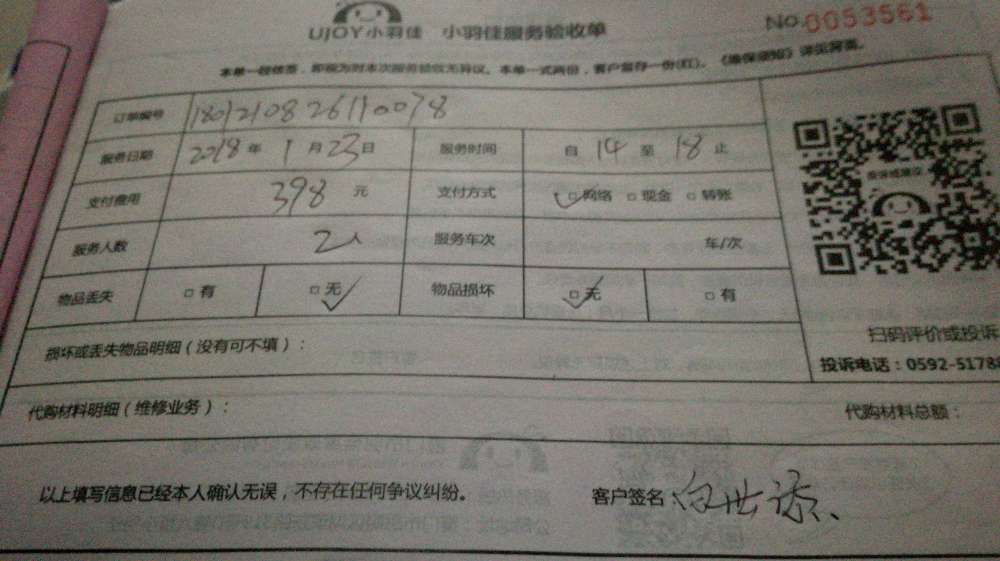 UJOY小羽佳 小羽佳服务验收单 No 0053561
本单一经签签，即视为对本次服务验收无异议。本单一式两份，客户留存一份(红)。《维保须知》详见背面。
订单编号 1801210826110078
服务日期 2018年1月23日 服务时间 自14至18止
支付费用 398元 支付方式 ☑网络 □现金 □转账
服务人数 2人 服务车次 车/次
物品丢失 □有 ☑无 物品损坏 ☑无 □有
扫码评价或投诉
损坏或丢失物品明细（没有可不填）：
投诉电话：0592-5178
代购材料明细（维修业务）： 代购材料总额：
以上填写信息已经本人确认无误，不存在任何争议纠纷。 客户签名：